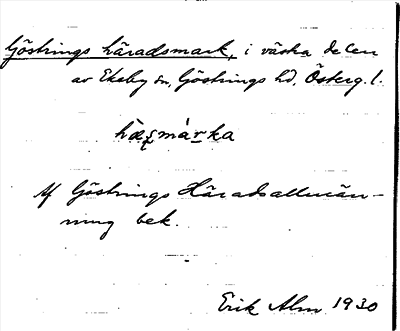 Göstrings häradsmark, i västra delen
av Ekeby sn, Göstrings hd, Österg. l.
hæʂmárka
Af Göstrings Häradsallmän-
ning bek.
Erik Alm 1930